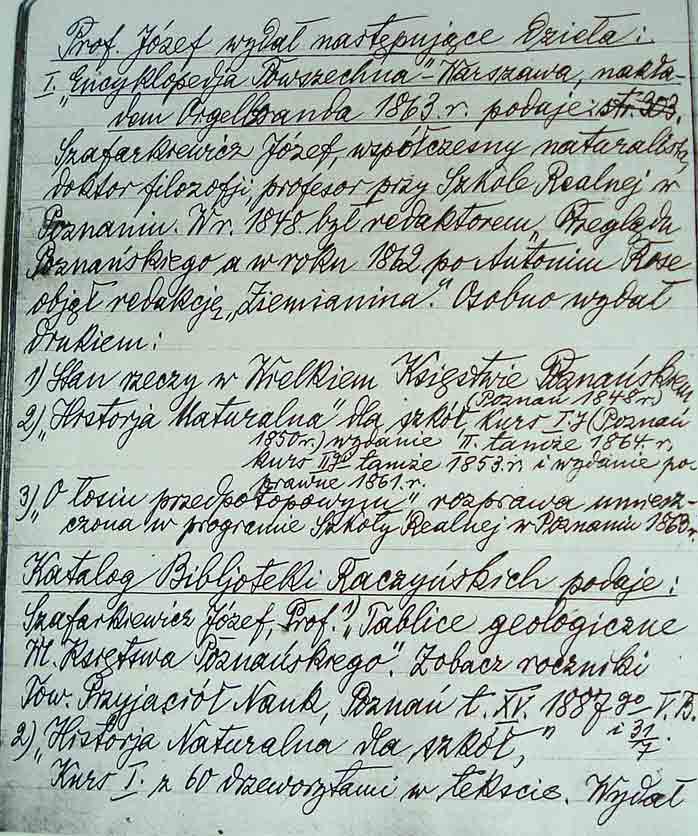 Prof. Józef wydał następujące Dzieła:
I. „Encyklopedja Powszechna" - Warszawa, nakła-
dem Orgelbranda 1863. r. podaje: str. 303.
Szafarkiewicz Józef, współczesny naturalista,
doktor filozofji, profesor przy Szkole Realnej w
Poznaniu. W r. 1848. był redaktorem „Przeglądu
Poznańskiego a w roku 1862 po Antonim Rose
objął redakcję „Ziemianina". Osobno wydał
drukiem:
1) Stan rzeczy w Wielkiem Księstwie Poznańskiem
(Poznań 1848 r.)
2) „Historja Naturalna" dla szkół, Kurs I-y (Poznań
1850 r.) wydanie II. tamże 1864. r.
Kurs II-gi tamże 1853. r. i wydanie po-
prawne 1861. r.
3) „O łosiu przedpotopowym" rozprawa umiesz-
czona w programie Szkoły Realnej w Poznaniu 1860. r.
Katalog Bibljoteki Raczyńskich podaje:
Szafarkiewicz Józef, Prof. 1) „Tablice geologiczne
W. Księstwa Poznańskiego". Zobacz roczniki
Tow. Przyjaciół Nauk, Poznań t. XV. 1887 go V. B.
i 31/7.
2) „Historja Naturalna dla szkół,"
Kurs I. z 60 drzeworytami w tekscie. Wydał